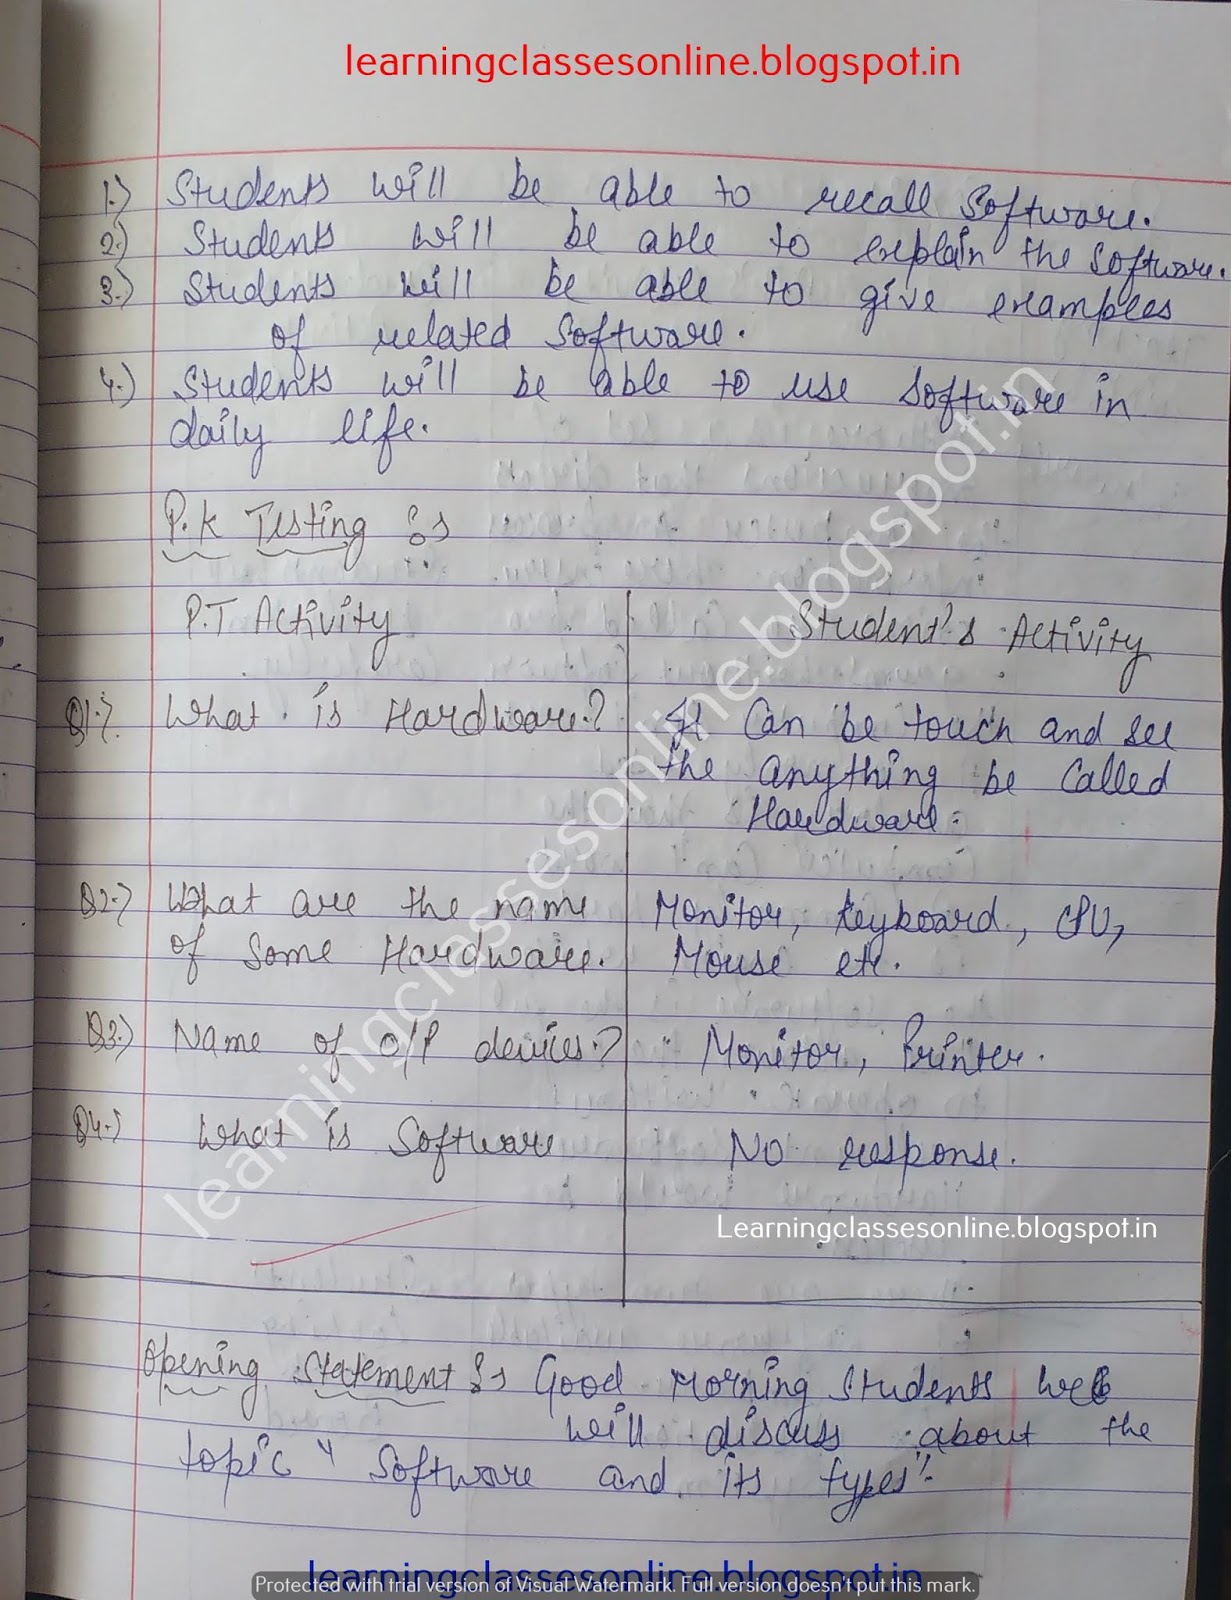 learningclassesonline.blogspot.in
1.) Students will be able to recall Software.
2.) Students will be able to explain the software.
3.) Students will be able to give examples
of related Software.
4.) Students will be able to use software in
daily life.
P.K Testing :-
P.T Activity
Student's Activity
Q1.) What is Hardware?
It Can be touch and see
the anything be Called
Hardware.
Q2.) What are the name
of Some Hardware.
Monitor, Keyboard, CPU,
Mouse etc.
Q3.) Name of O/P devices?
Monitor, Printer.
Q4.) What is Software
No response.
learningclassesonline.blogspot.in
Learningclassesonline.blogspot.in
Opening Statement :- Good Morning Students we
will discuss about the
topic "Software and its types".
learningclassesonline.blogspot.in
Protected with trial version of Visual Watermark. Full version doesn't put this mark.